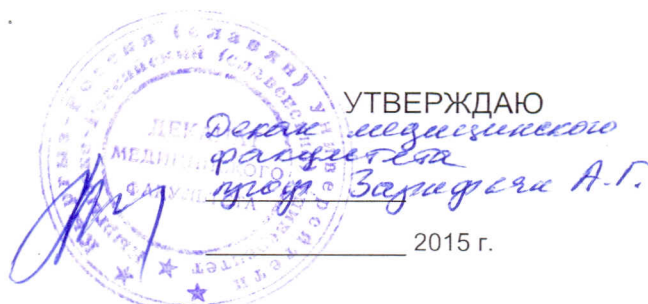 УТВЕРЖДАЮ
Декан медицинского
факультета
проф. Зарифьян А.Г.
2015 г.
ДЕКАН
МЕДИЦИНСКОГО
ФАКУЛЬТЕТА